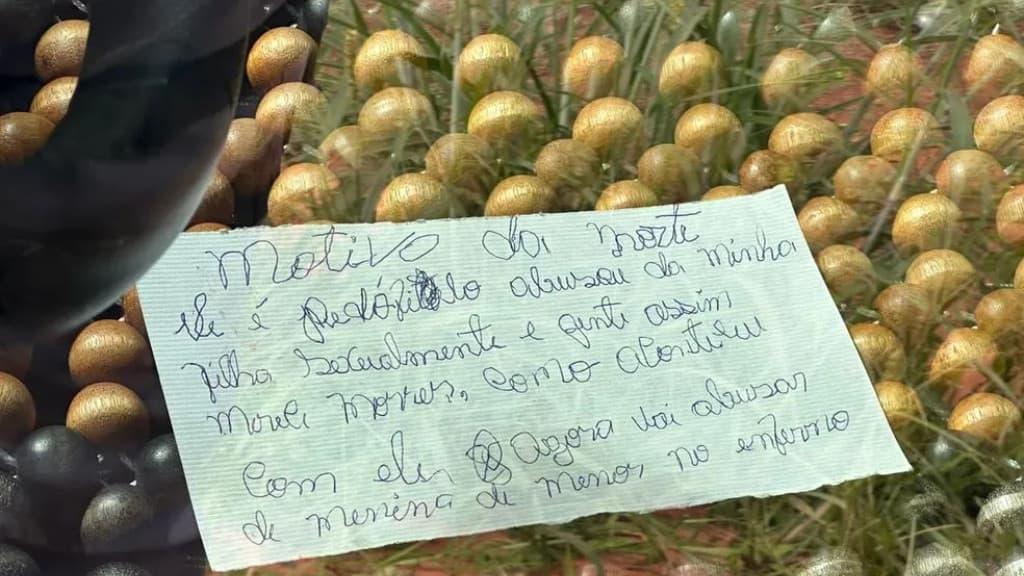 Motivo da morte
ele é pedófilo abusou da minha
filha sexualmente e gente assim
mereci morrer, como aconticeu
com ele agora vai abusar
de menina de menor no enferno